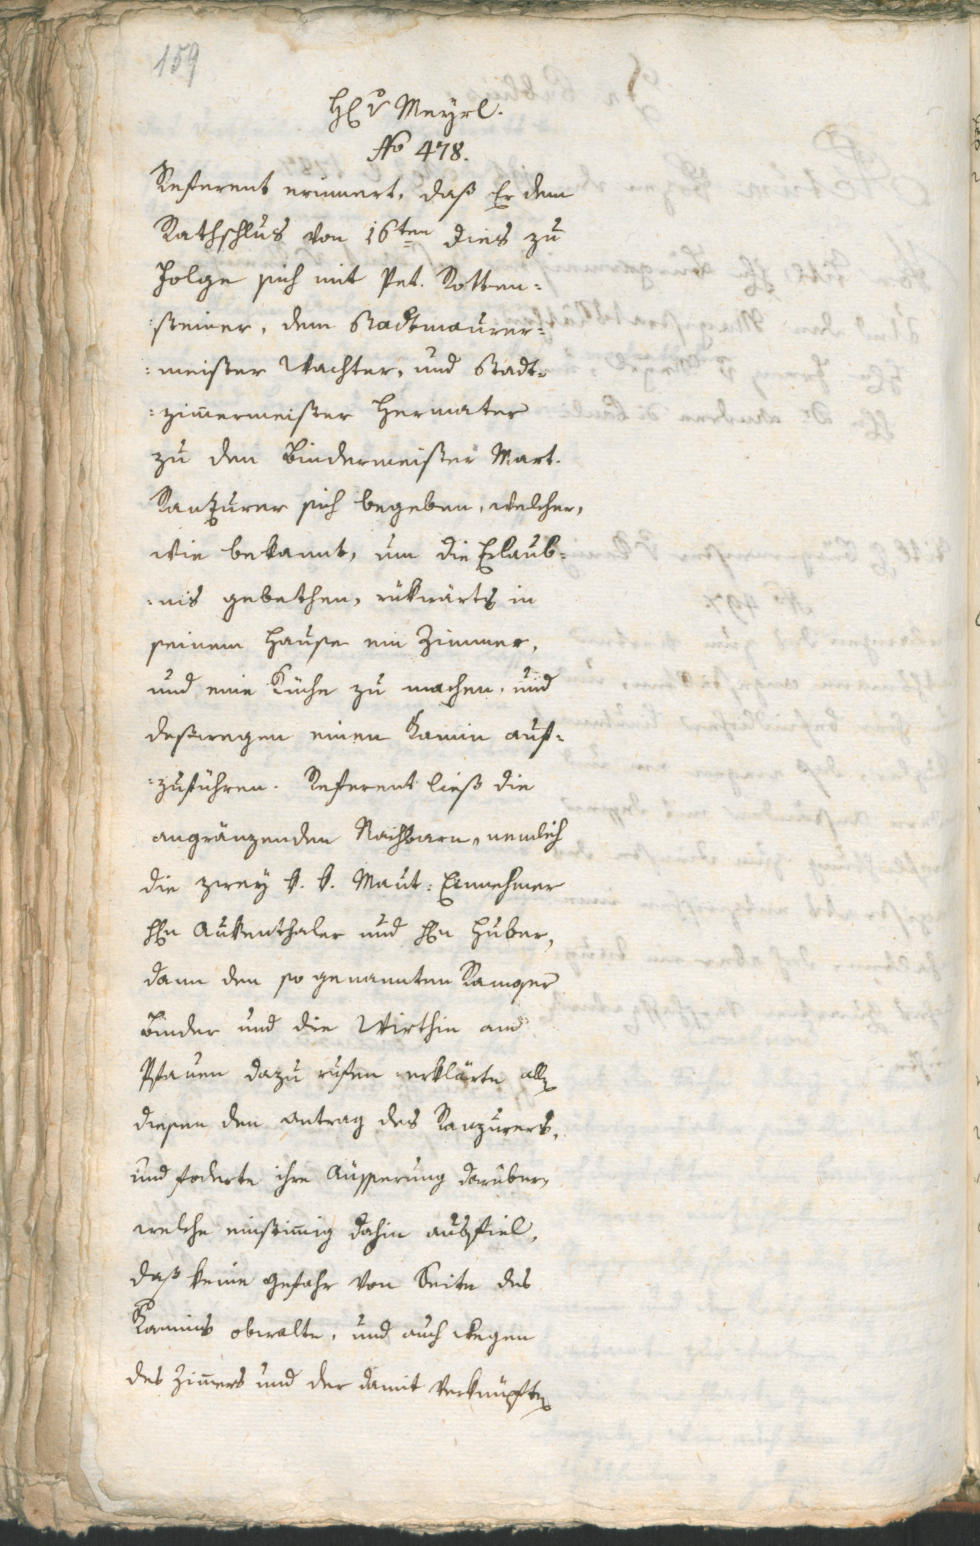 159
H. v Meyrl.
No 478.
Referent erinnert, daß Er dem
Rathschlus von 16ten dies zu
Folge sich mit Pet. Rotten=
:steiner, dem Stadtmaurer=
:meister Wachter, und Stadt=
:zim̅ermeister Hermater
zu den Bindermeister Mart.
Ranzurer sich begeben, welcher,
wie bekannt, um die Erlaub=
:nis gebethen, rükwärts in
seinem Hause ein Zimmer,
und eine Küche zu machen, und
deßwegen einen Kamin auf=
:zuführen. Referent ließ die
angränzenden Nachbarn, nemlich
die zwey k. k. Maut=Einnehmer
Hn Aukenthaler und Hn Huber,
dann den so genannten Ramser
Binder und die Wirthin am
Pfauen dazu rufen erklärte allen
diesen den antrag des Ranzurers,
und foderte ihre Äusserung darüber,
welche einstim̅ig dahin ausfiel,
daß keine gefahr von Seite des
Kamins obwalte, und auch wegen
des Zim̅ers und der damit verknüpften